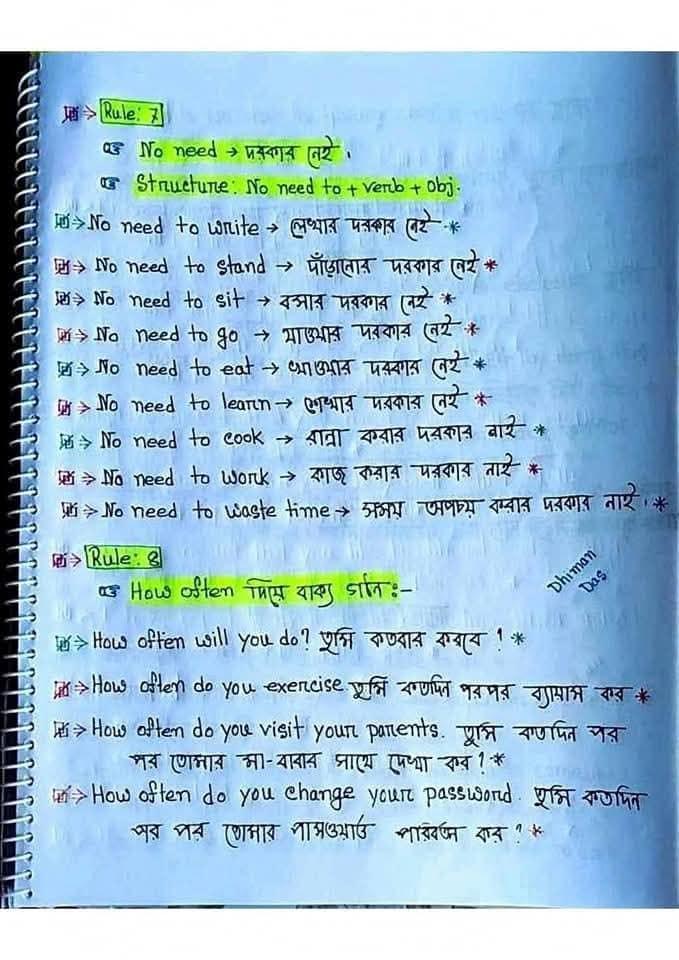 Rule: 7
No need → দরকার নেই।
Structure: No need to + verb + obj.
No need to write → লেখার দরকার নেই
No need to stand → দাঁড়ানোর দরকার নেই
No need to sit → বসার দরকার নেই
No need to go → যাওয়ার দরকার নেই
No need to eat → খাওয়ার দরকার নেই
No need to learn → শেখার দরকার নেই
No need to cook → রান্না করার দরকার নাই
No need to work → কাজ করার দরকার নাই
No need to waste time → সময় অপচয় করার দরকার নাই।
Rule: 8
How often দিয়ে বাক্য গঠন :-
Dhiman
Das
How often will you do? তুমি কতবার করবে ?
How often do you exercise. তুমি কতদিন পরপর ব্যায়াম কর
How often do you visit your parents. তুমি কতদিন পর
পর তোমার মা-বাবার সাথে দেখা কর ?
How often do you change your password. তুমি কতদিন
পর পর তোমার পাসওয়ার্ড পরিবর্তন কর ?